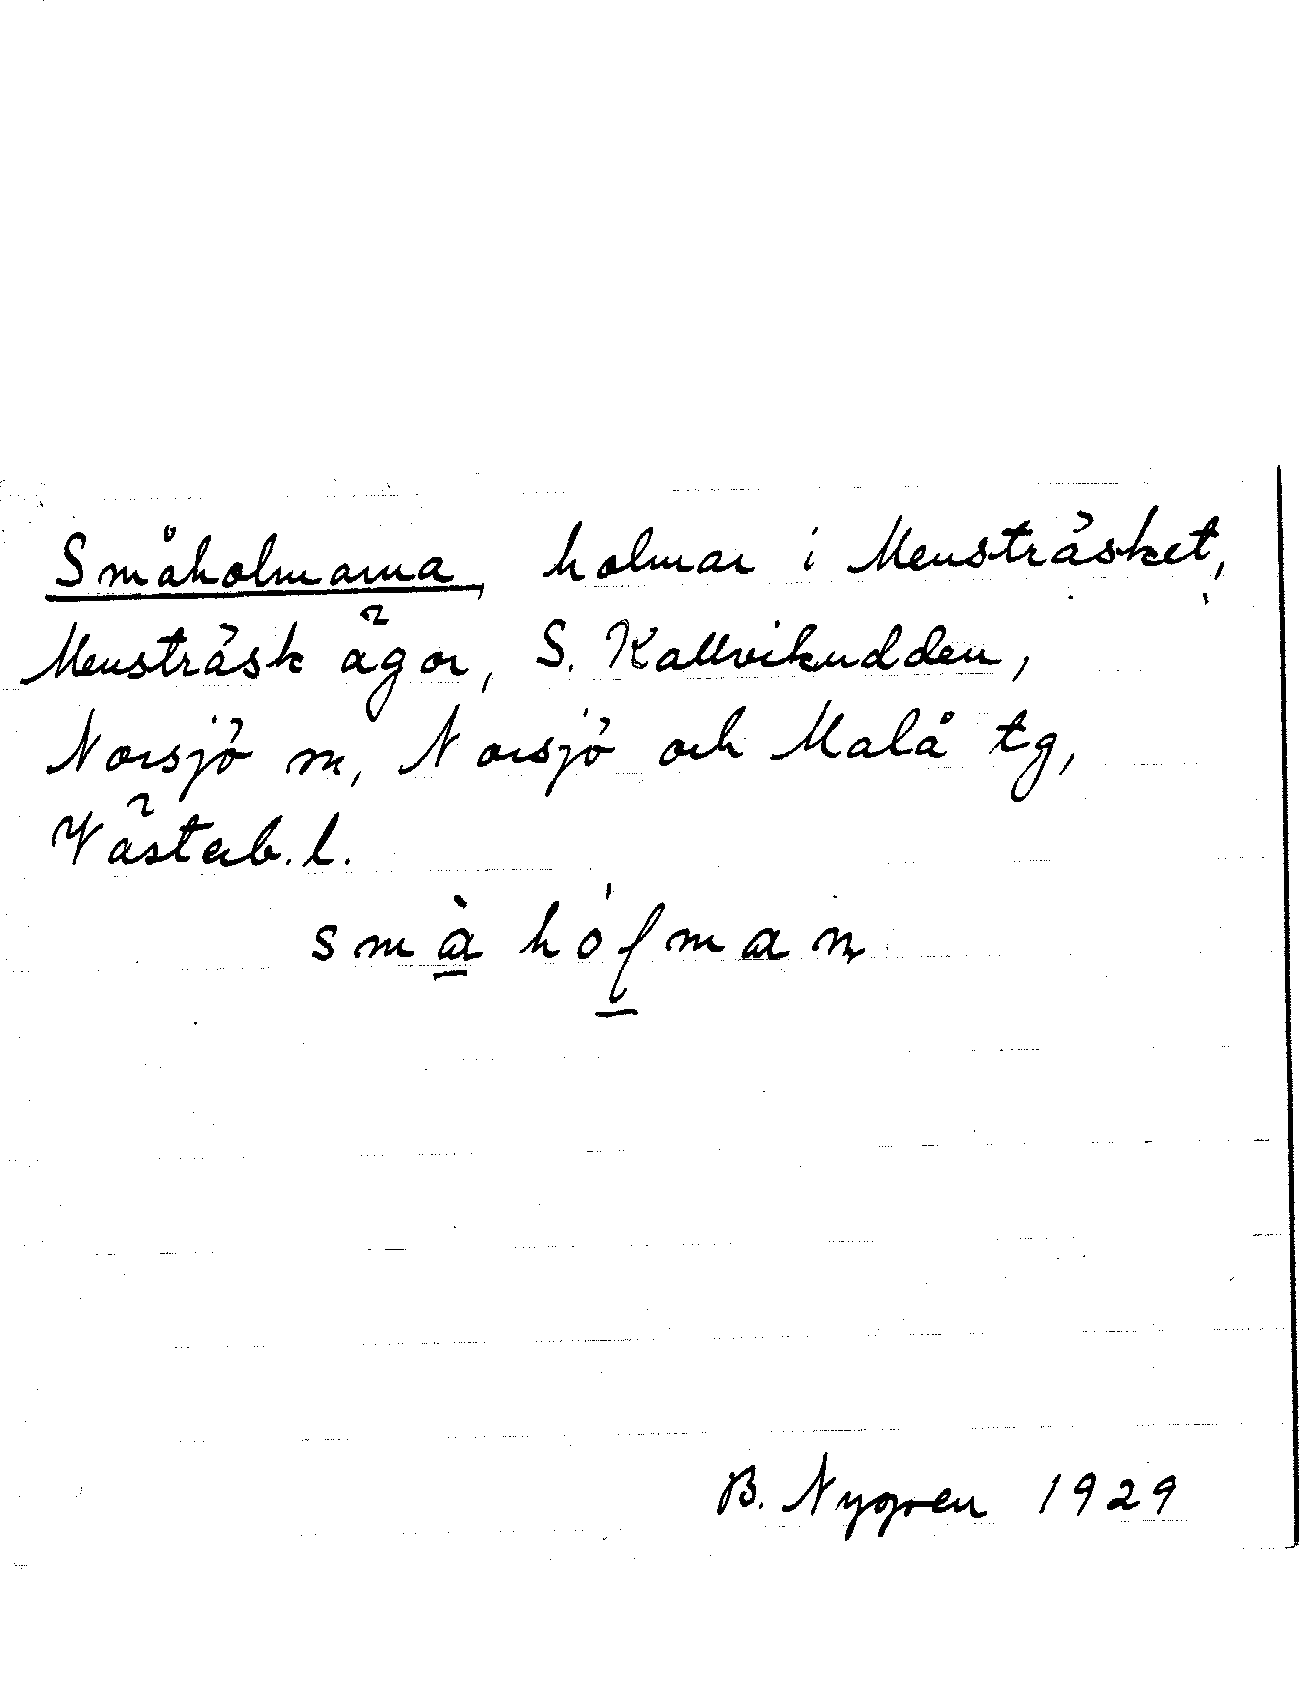 Småholmarna, holmar i Mensträsket,
Mensträsk ägor, S. Kallvikudden,
Norsjö m, Norsjö och Malå tg,
Västerb. l.
små hóʃman
B. Nygren 1929